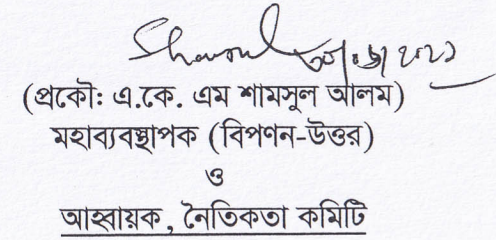 (প্রকৌঃ এ.কে. এম শামসুল আলম)
মহাব্যবস্থাপক (বিপণন-উত্তর)
ও
আহ্বায়ক, নৈতিকতা কমিটি